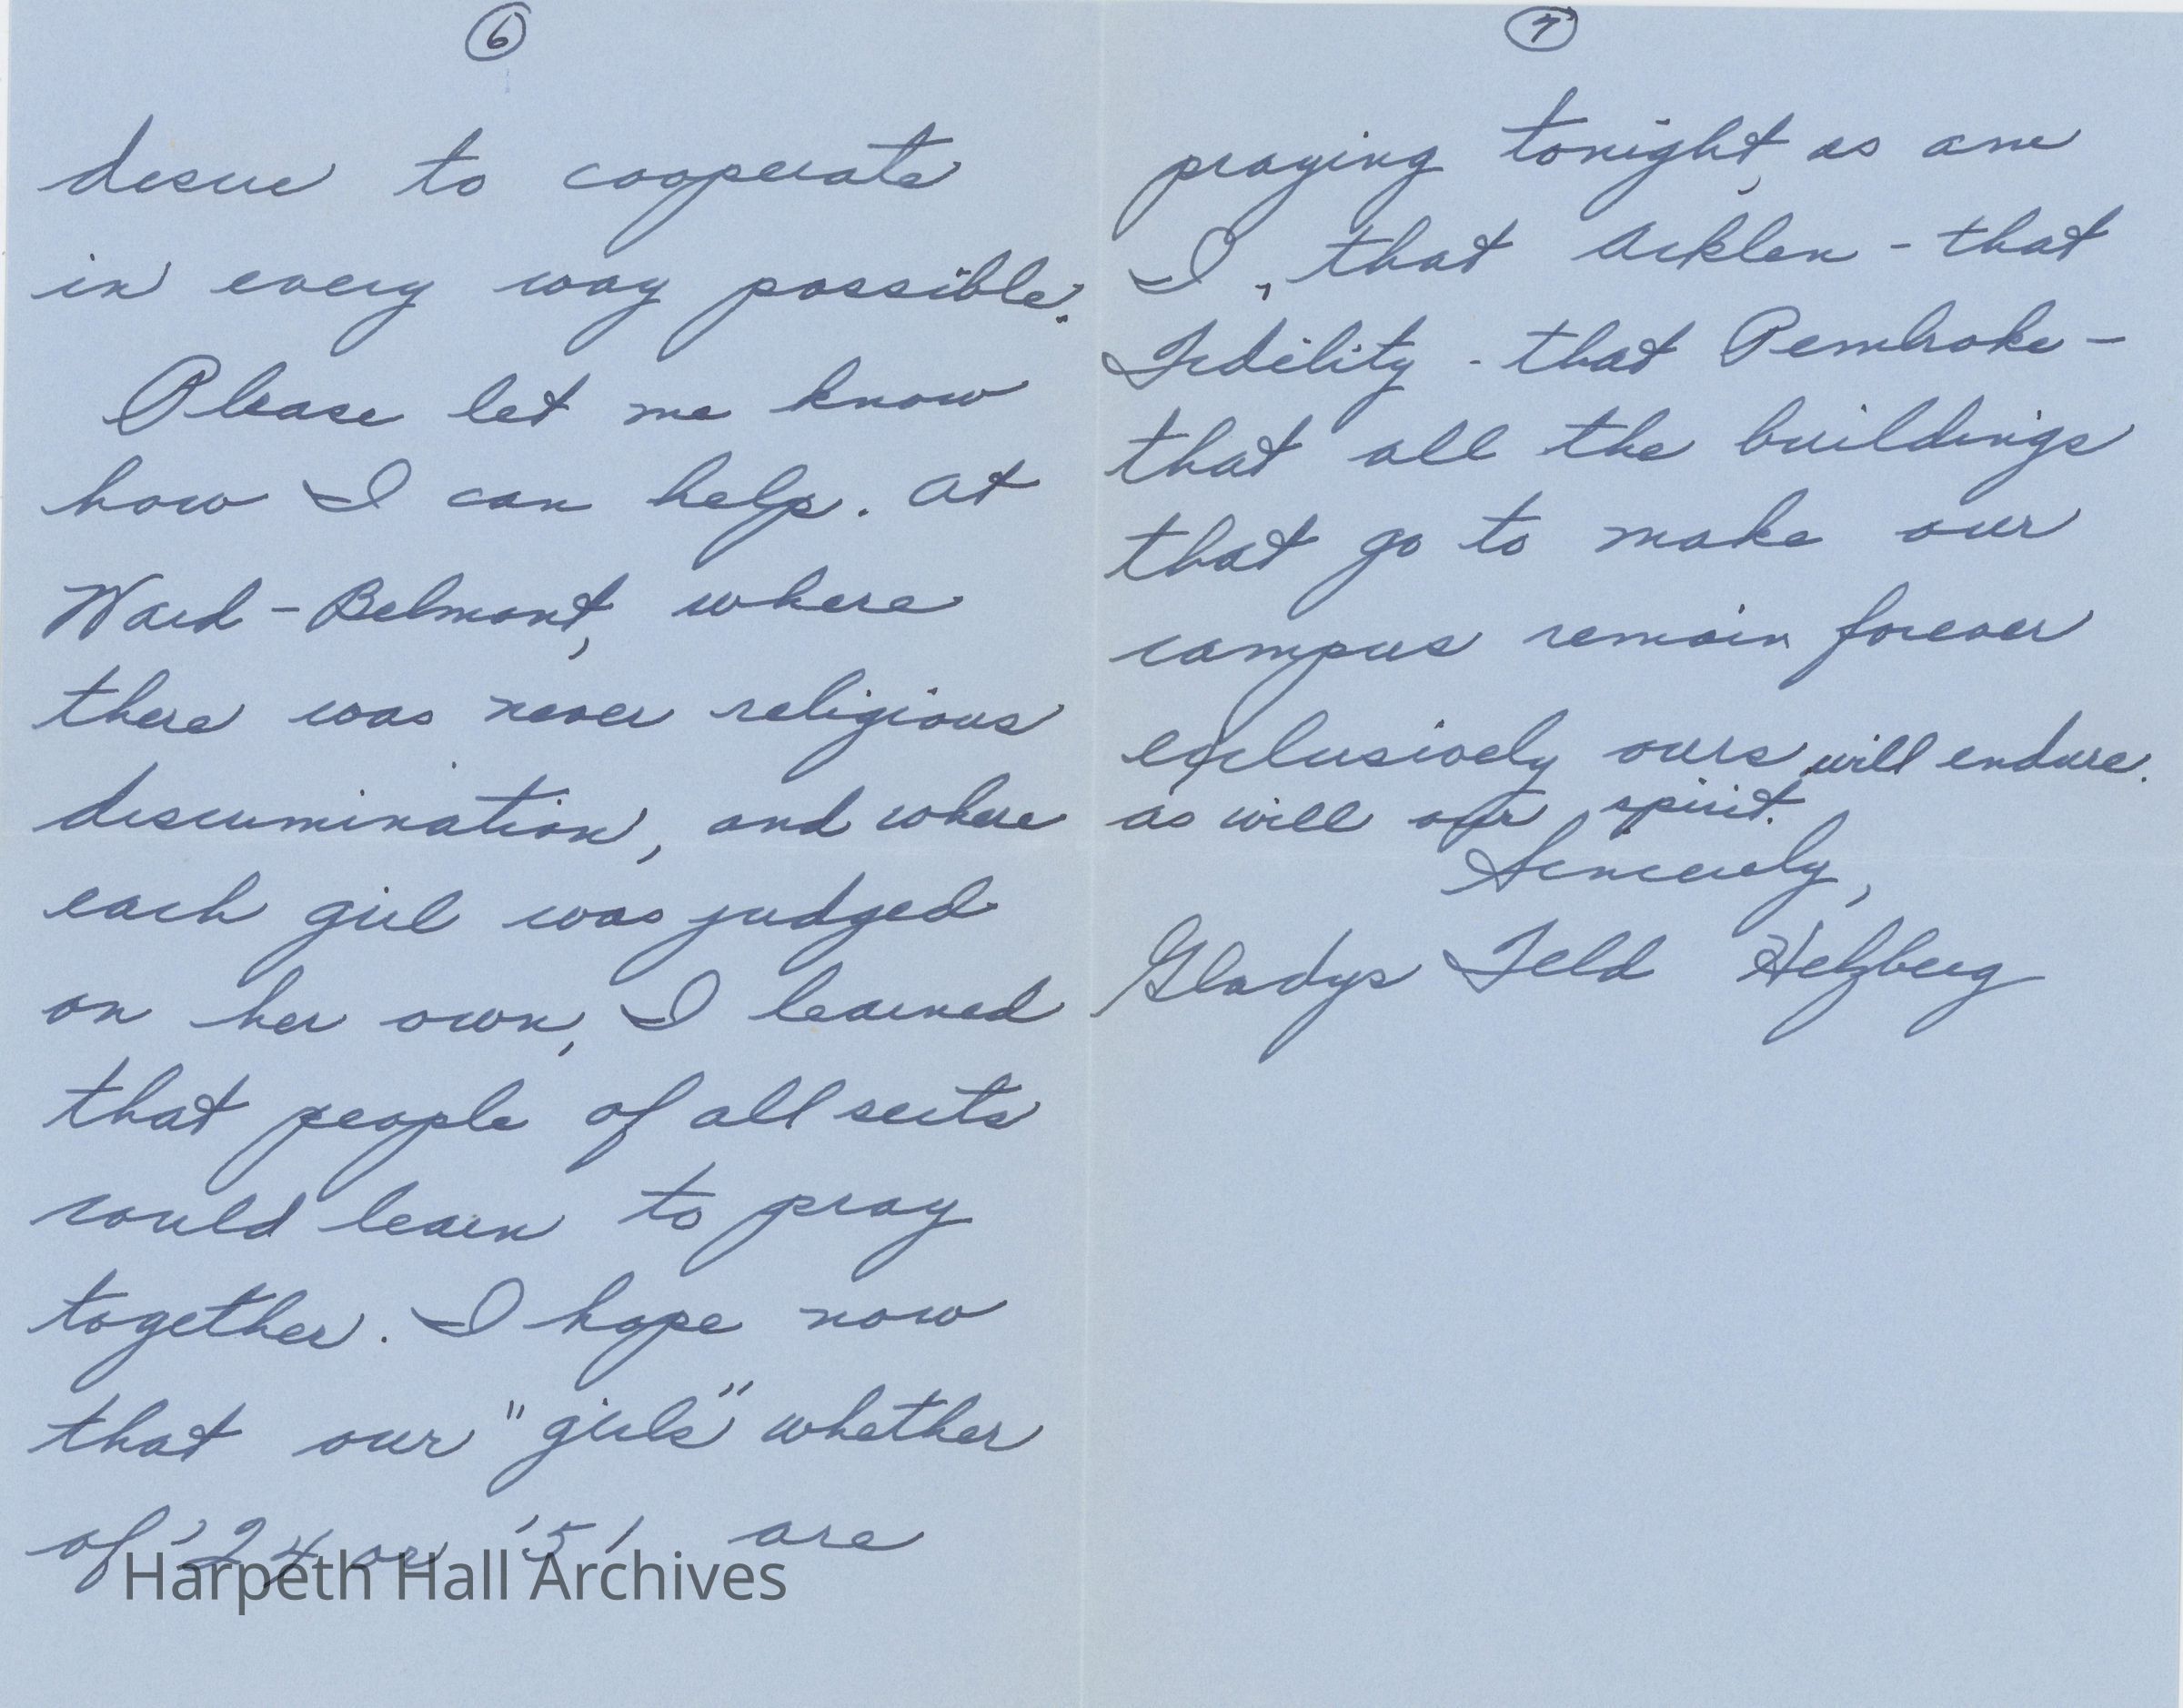 6
desire to cooperate
in every way possible.
Please let me know
how I can help. At
Ward-Belmont, where
there was never religious
discrimination, and where
each girl was judged
on her own, I learned
that people of all sects
could learn to pray
together. I hope now
that our "girls" whether
of '24 or '51 are
Harpeth Hall Archives
7
praying tonight, as am
I, that Acklen - that
Fidelity - that Pembroke -
that all the buildings
that go to make our
campus remain forever
exclusively ours, will endure.
as will our spirit.
Sincerely,
Gladys Feld Helzberg